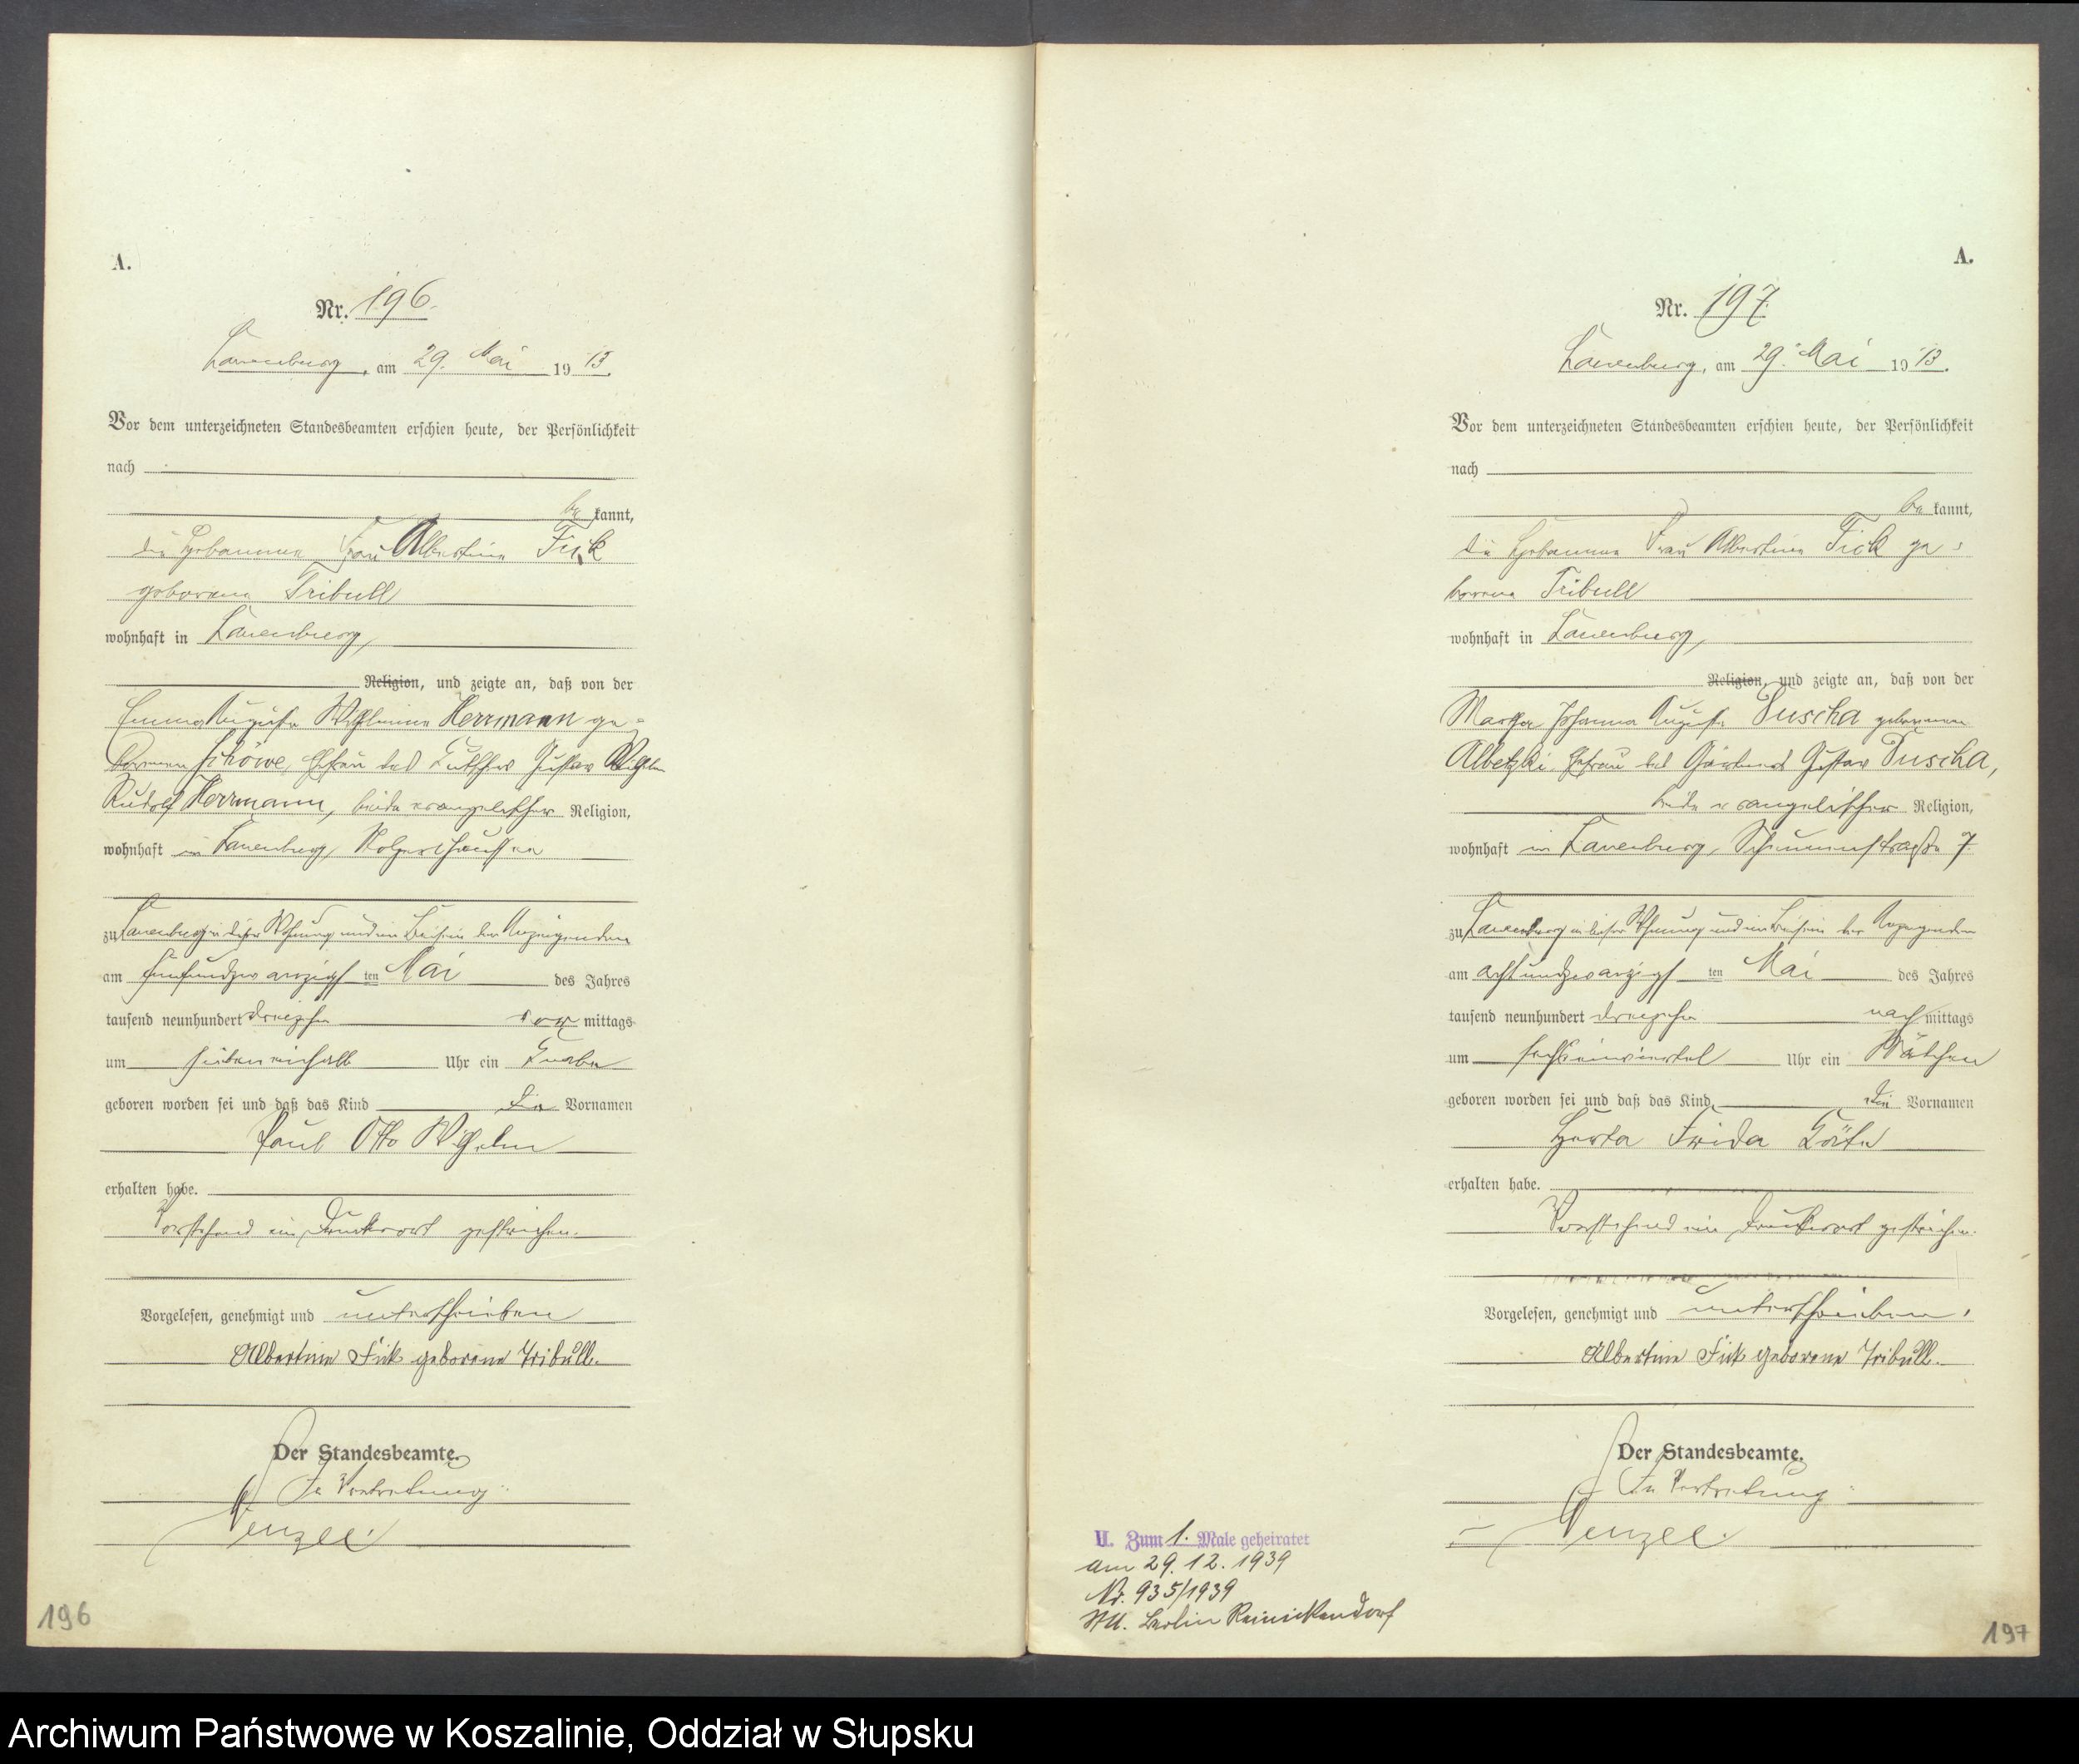 A.
Nr. 196.
Lauenburg, am 29. Mai 1913.
Vor dem unterzeichneten Standesbeamten erschien heute, der Persönlichkeit
nach
be kannt,
die Hebamme Frau Albertine Fick
geborene Tribull
wohnhaft in Lauenburg,
Religion, und zeigte an, daß von der
Emma Auguste Wilhelmine Herrmann ge-
borenen Schöwe, Ehefrau des Kutscher Gustav Wilhelm
Rudolf Herrmann, beide evangelischer Religion,
wohnhaft in Lauenburg,
zu Lauenburg in dieser Wohnung und im Beisein der Anzeigenden
am fünfundzwanzigsten Mai des Jahres
tausend neunhundert dreizehn vor mittags
um sieben einhalb Uhr ein Knabe
geboren worden sei und daß das Kind die Vornamen
Paul Otto Wilhelm
erhalten habe.
Vorstehend ein Druckwort gestrichen.
Vorgelesen, genehmigt und unterschrieben
Albertine Fick geborene Tribull.
Der Standesbeamte.
In Vertretung:
Wenzel.
196
A.
Nr. 197.
Lauenburg, am 29. Mai 1913.
Vor dem unterzeichneten Standesbeamten erschien heute, der Persönlichkeit
nach
be kannt,
die Hebamme Frau Albertine Fick ge-
borene Tribull
wohnhaft in Lauenburg,
Religion, und zeigte an, daß von der
Martha Johanna Auguste Puscha geborenen
Albetzki, Ehefrau des Gärtners Gustav Puscha,
beide evangelischer Religion,
wohnhaft in Lauenburg, Scheunenstraße 7.
zu Lauenburg in dieser Wohnung und im Beisein der Anzeigenden
am achtundzwanzigsten Mai des Jahres
tausend neunhundert dreizehn nach mittags
um sechs einviertel Uhr ein Mädchen
geboren worden sei und daß das Kind die Vornamen
Herta Frida Käte
erhalten habe.
Vorstehend ein Druckwort gestrichen.
Vorgelesen, genehmigt und unterschrieben.
Albertine Fick geborene Tribull.
Der Standesbeamte.
In Vertretung:
Wenzel.
II. Zum 1. Male geheiratet
am 29.12.1939
Nr. 935/1939
StA. Berlin Reinickendorf
197
Archiwum Państwowe w Koszalinie, Oddział w Słupsku